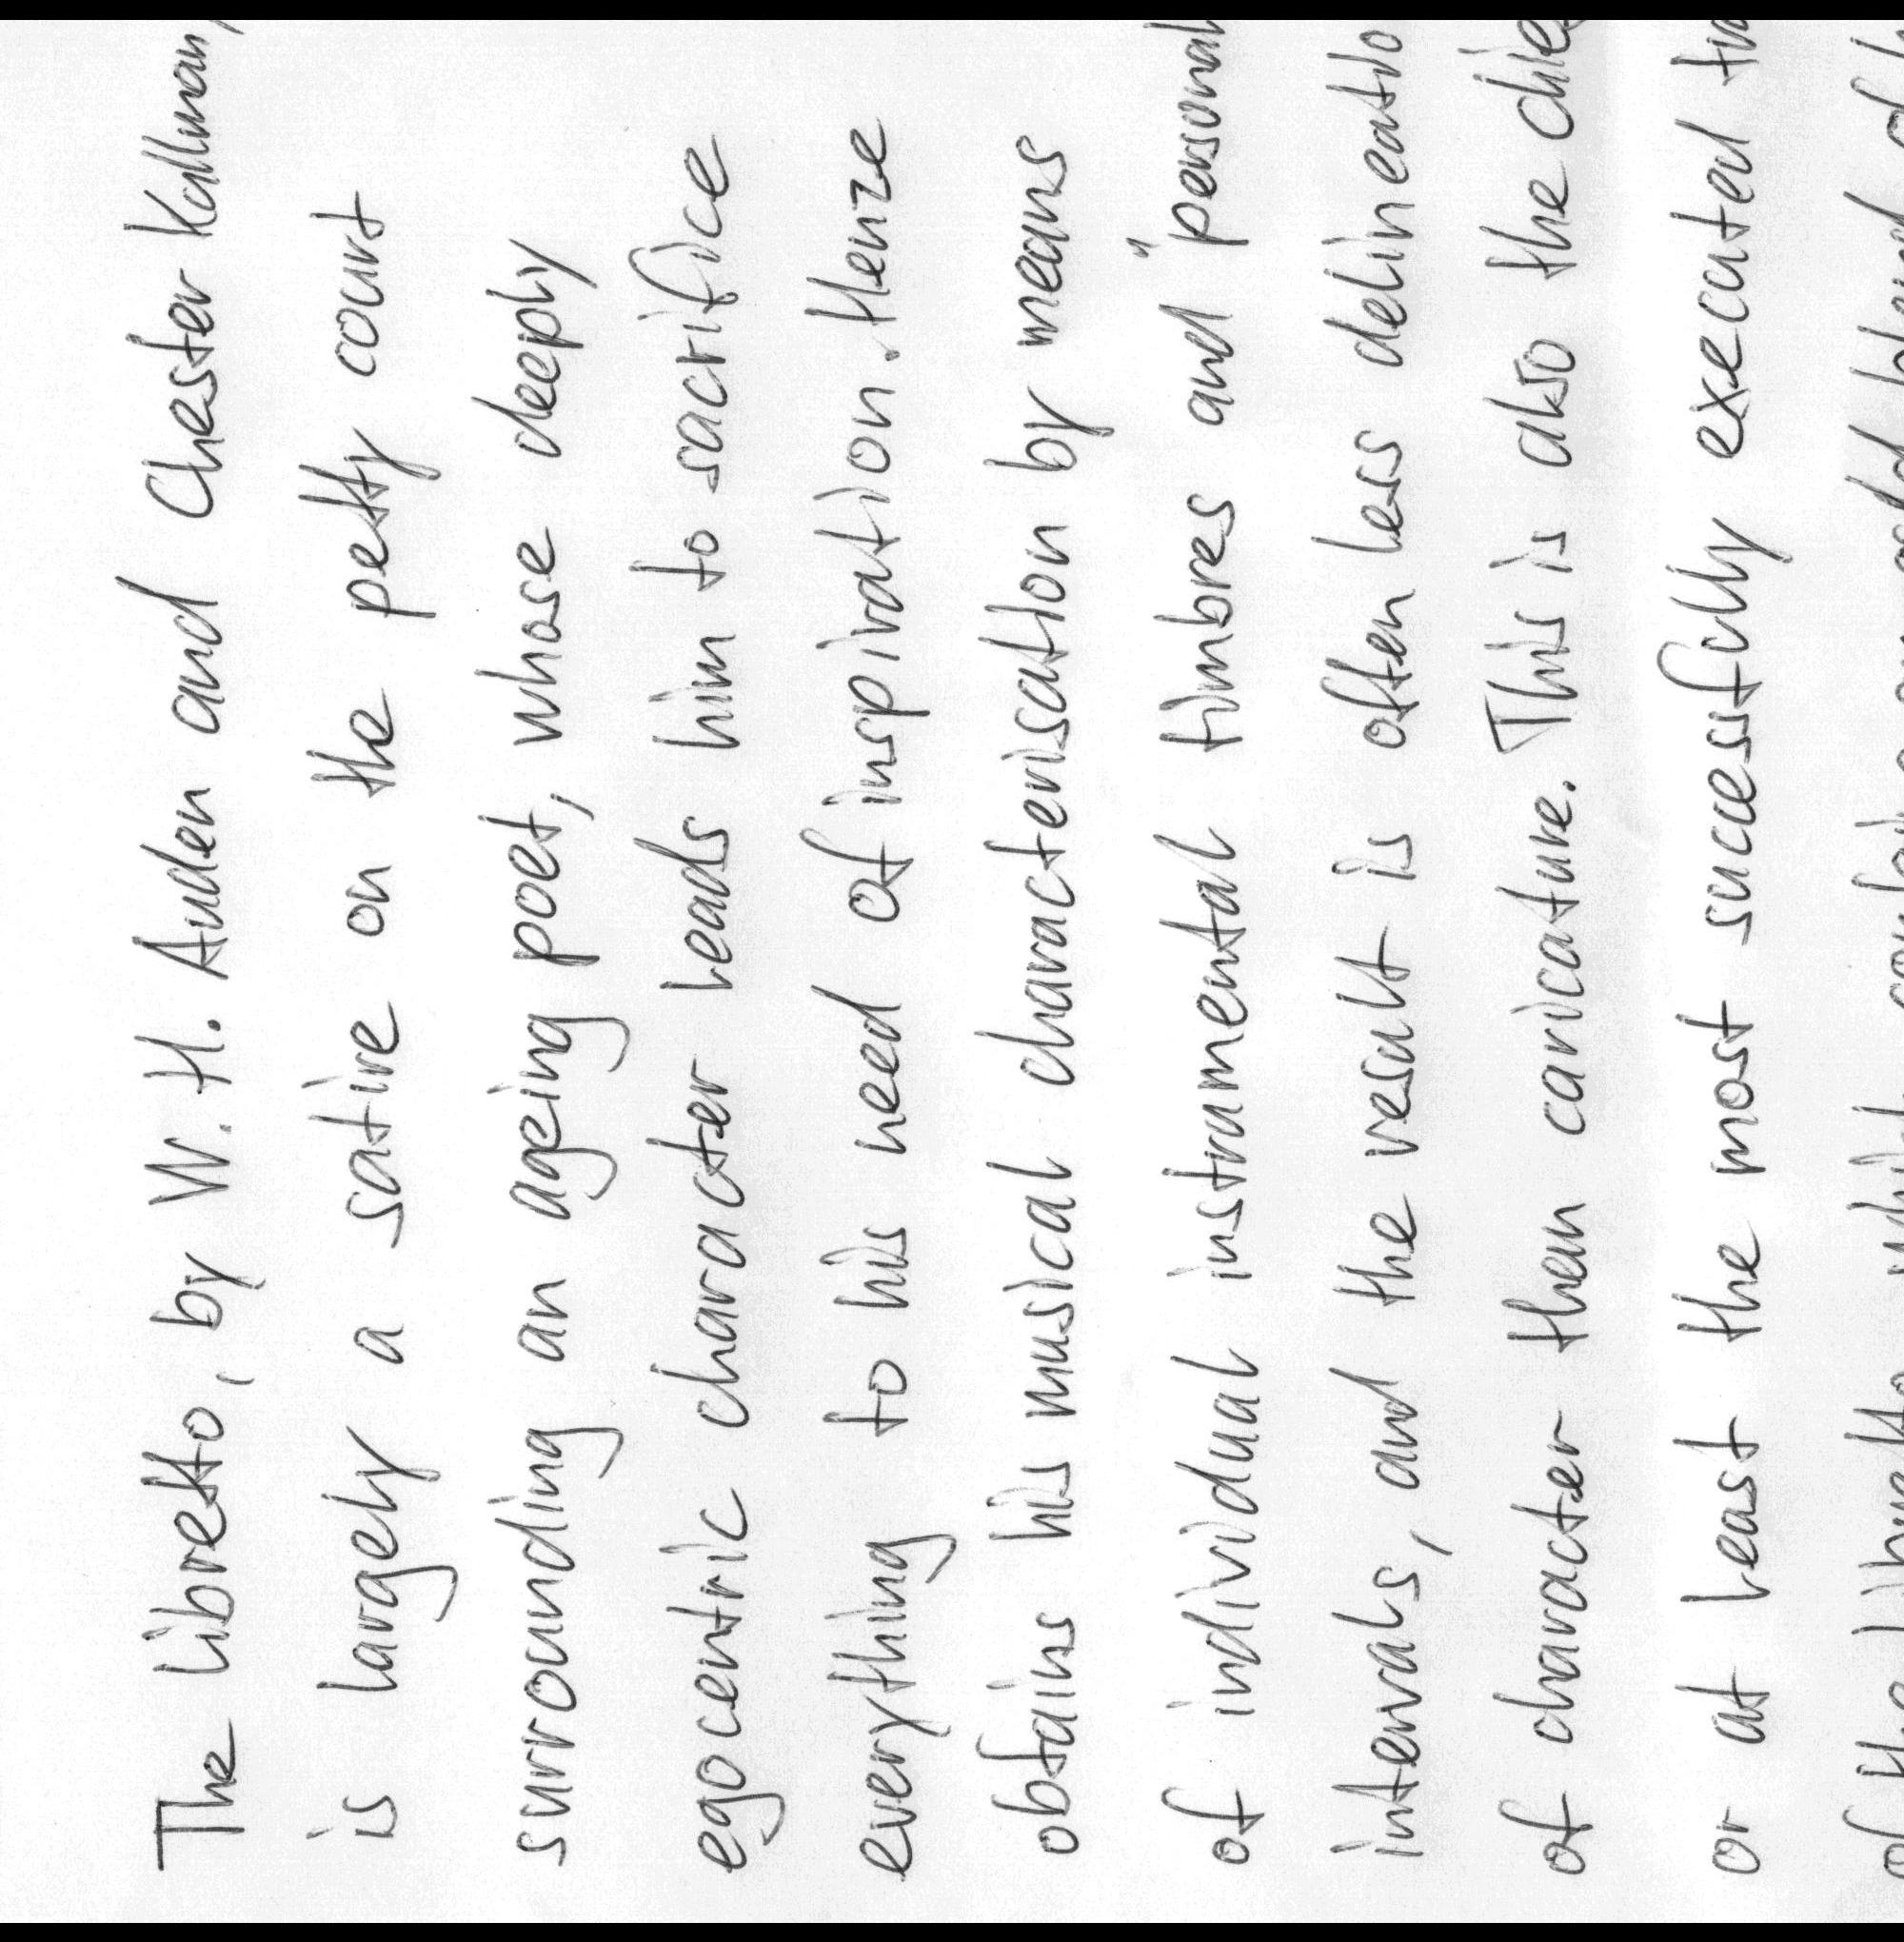 The Libretto, by W. H. Auden and Chester Kallman,
is largely a satire on the petty court
surrounding an ageing poet, whose deeply
egocentric character leads him to sacrifice
everything to his need of inspiration. Henze
obtains his musical characterisation by means
of individual instrumental timbres and "personal
intervals, and the result is often less delineatio
of character than caricature. This is also the chief
or at least the most successfully executed
of the libretto, which